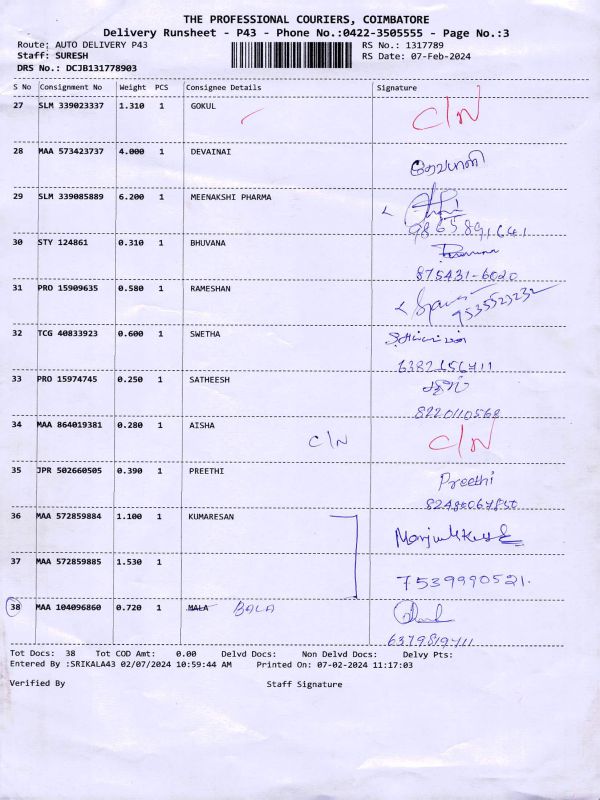 THE PROFESSIONAL COURIERS, COIMBATORE
Delivery Runsheet - P43 - Phone No.:0422-3505555 - Page No.:3
Route: AUTO DELIVERY P43 RS No.: 1317789
Staff: SURESH RS Date: 07-Feb-2024
DRS No.: DCJB131778903
S No Consignment No Weight PCS Consignee Details Signature
27 SLM 339023337 1.310 1 GOKUL C/N
28 MAA 573423737 4.000 1 DEVAINAI
29 SLM 339085889 6.200 1 MEENAKSHI PHARMA
9865891641
30 STY 124861 0.310 1 BHUVANA
875431-6020
31 PRO 15909635 0.580 1 RAMESHAN
7535523232
32 TCG 40833923 0.600 1 SWETHA
6382156411
33 PRO 15974745 0.250 1 SATHEESH
8220110568
34 MAA 864019381 0.280 1 AISHA C/N C/N
35 JPR 502660505 0.390 1 PREETHI Preethi
36 MAA 572859884 1.100 1 KUMARESAN
37 MAA 572859885 1.530 1 7539990521.
38 MAA 104096860 0.720 1 MALA BALA
6379819711
Tot Docs: 38 Tot COD Amt: 0.00 Delvd Docs: Non Delvd Docs: Delvy Pts:
Entered By :SRIKALA43 02/07/2024 10:59:44 AM Printed On: 07-02-2024 11:17:03
Verified By Staff Signature